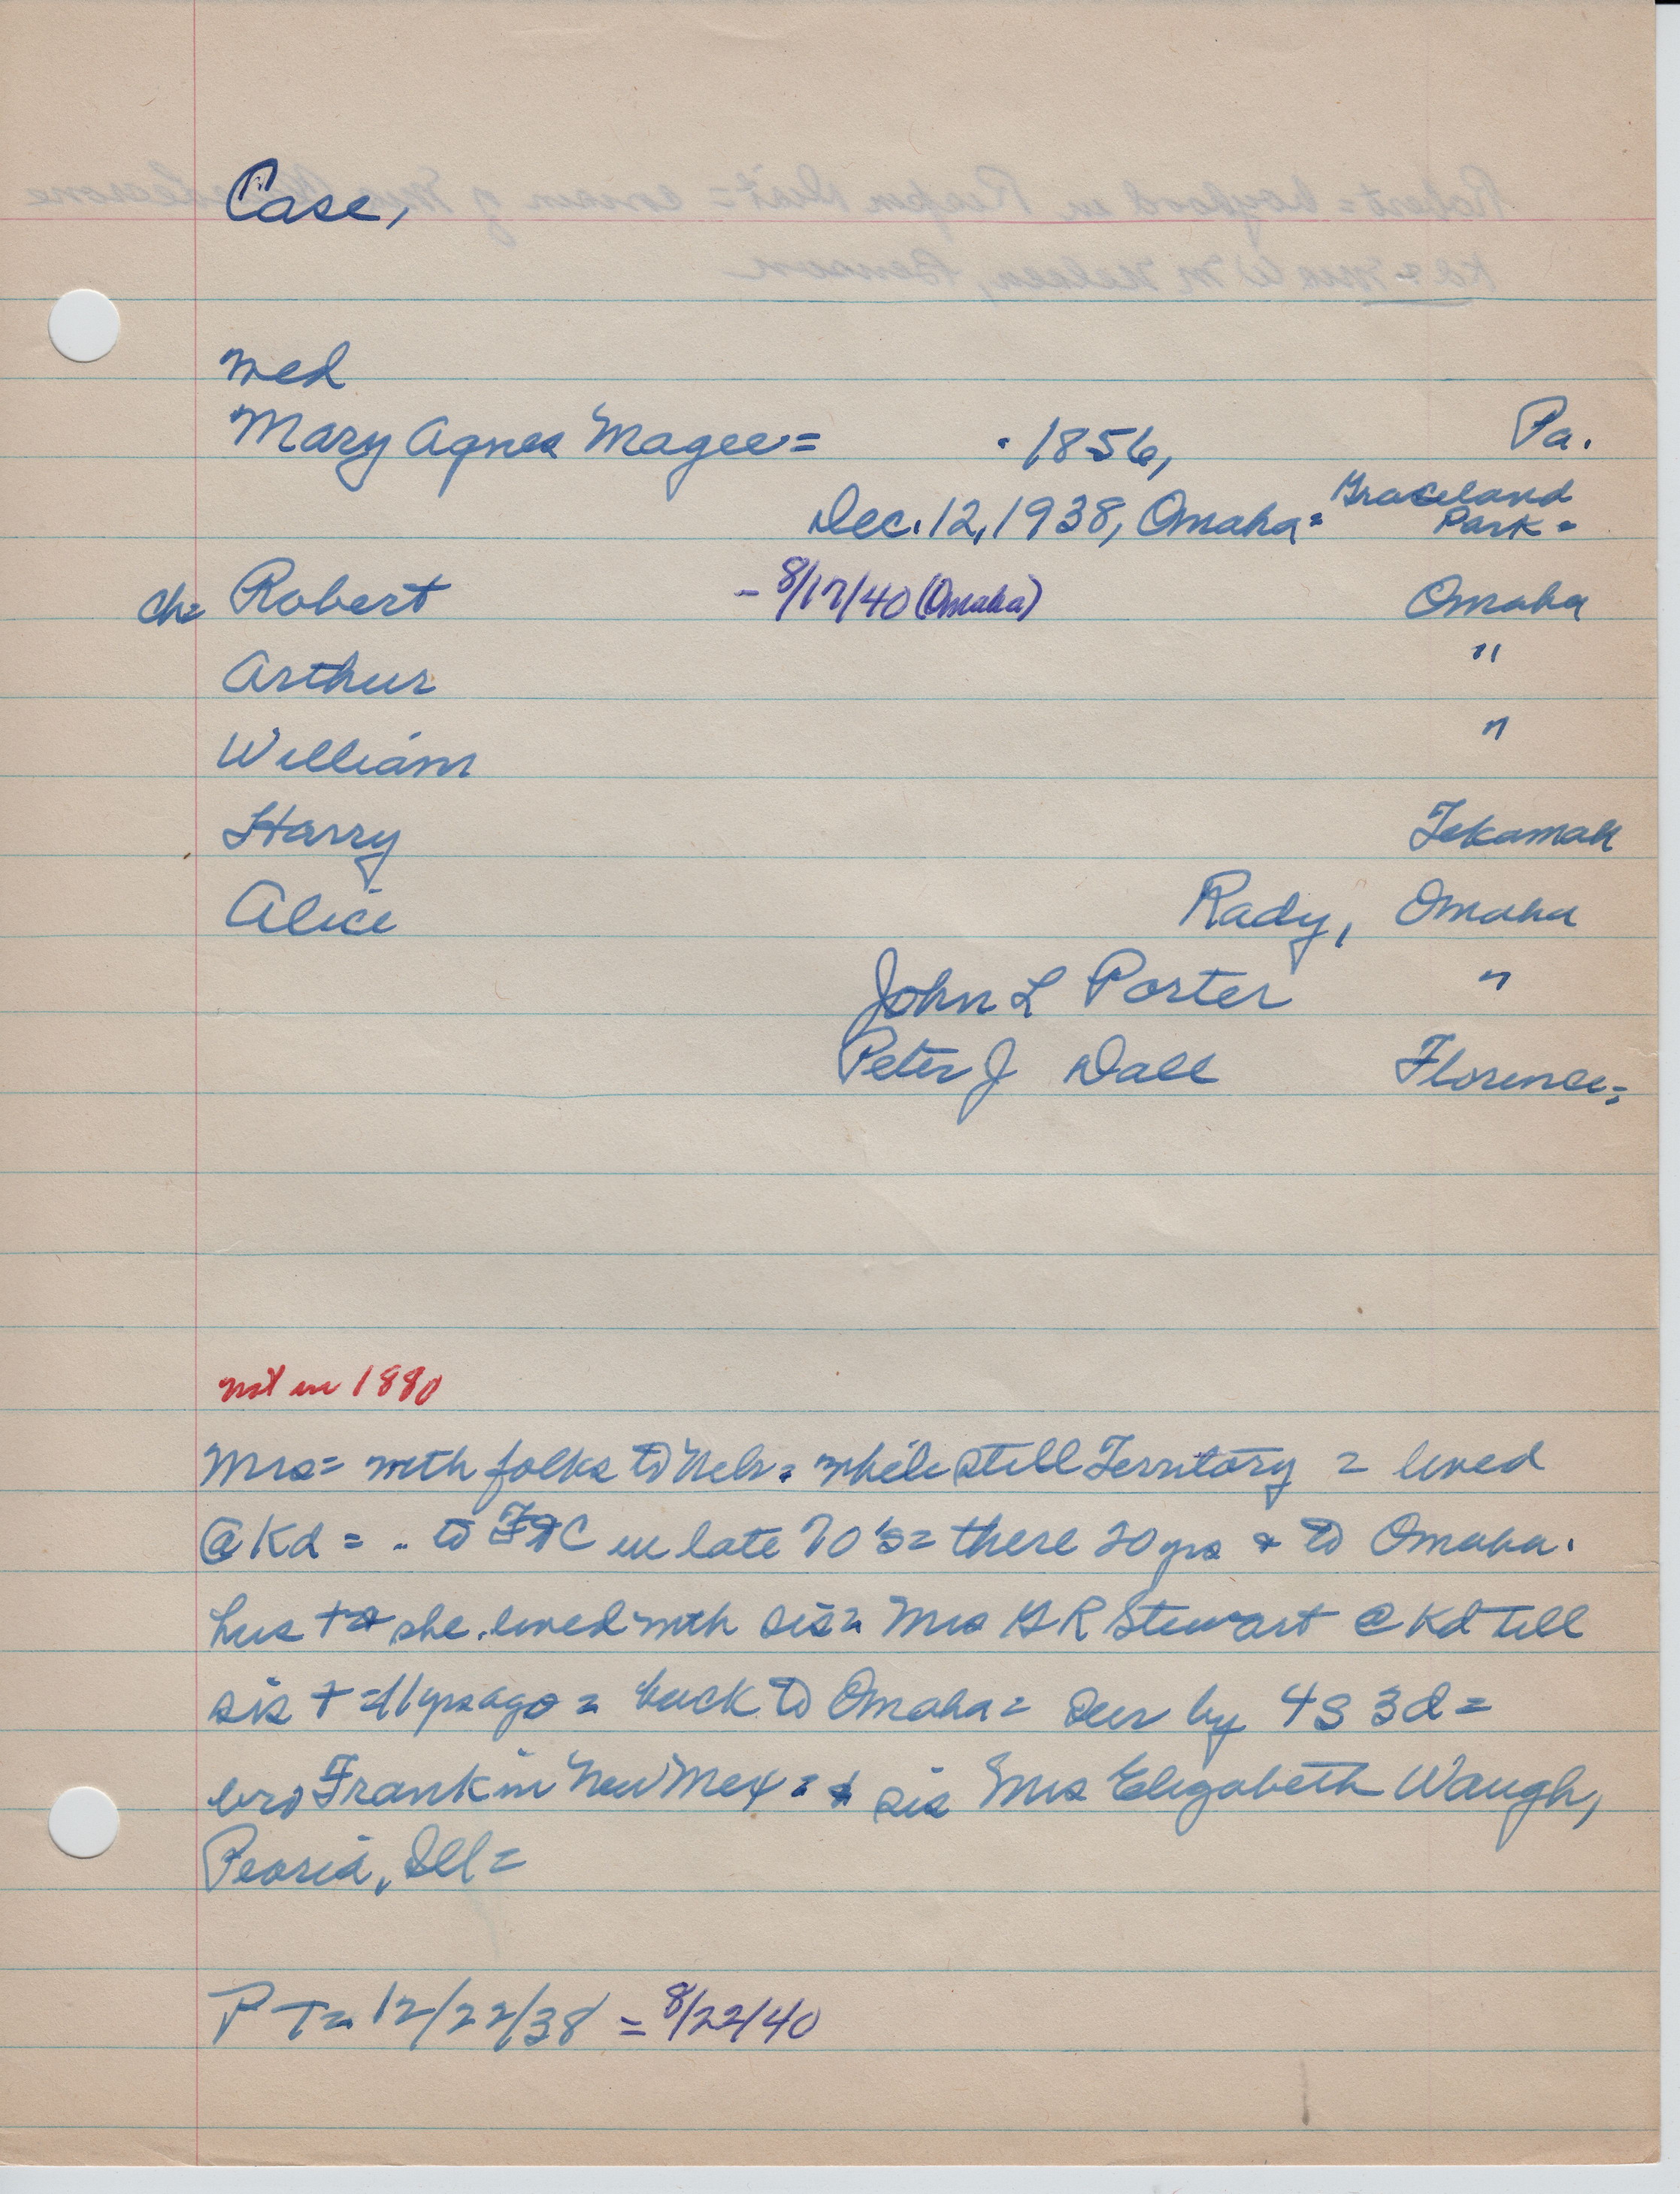 Case,
med
Mary Agnes Magee = . 1856, Pa.
Dec. 12, 1938, Omaha = Graceland Park =
ch = Robert - 8/17/40 (Omaha) Omaha
Arthur "
William "
Harry Tekamah
Alice Rady, Omaha
John L Porter "
Peter J Dall Florence =
not in 1880
Mrs = with folks to Neb = while still Territory = lived
@ Kd = .. to FtC in late 70's = there 20 yrs + to Omaha.
hus + she lived with sis = Mrs G R Stewart @ Kd till
sis + = 11 yrs ago = back to Omaha = sur by 4 S 3 d =
bro Frank in New Mex = + sis Mrs Elizabeth Waugh,
Peoria, Ill =
P T = 12/22/38 = 8/22/40